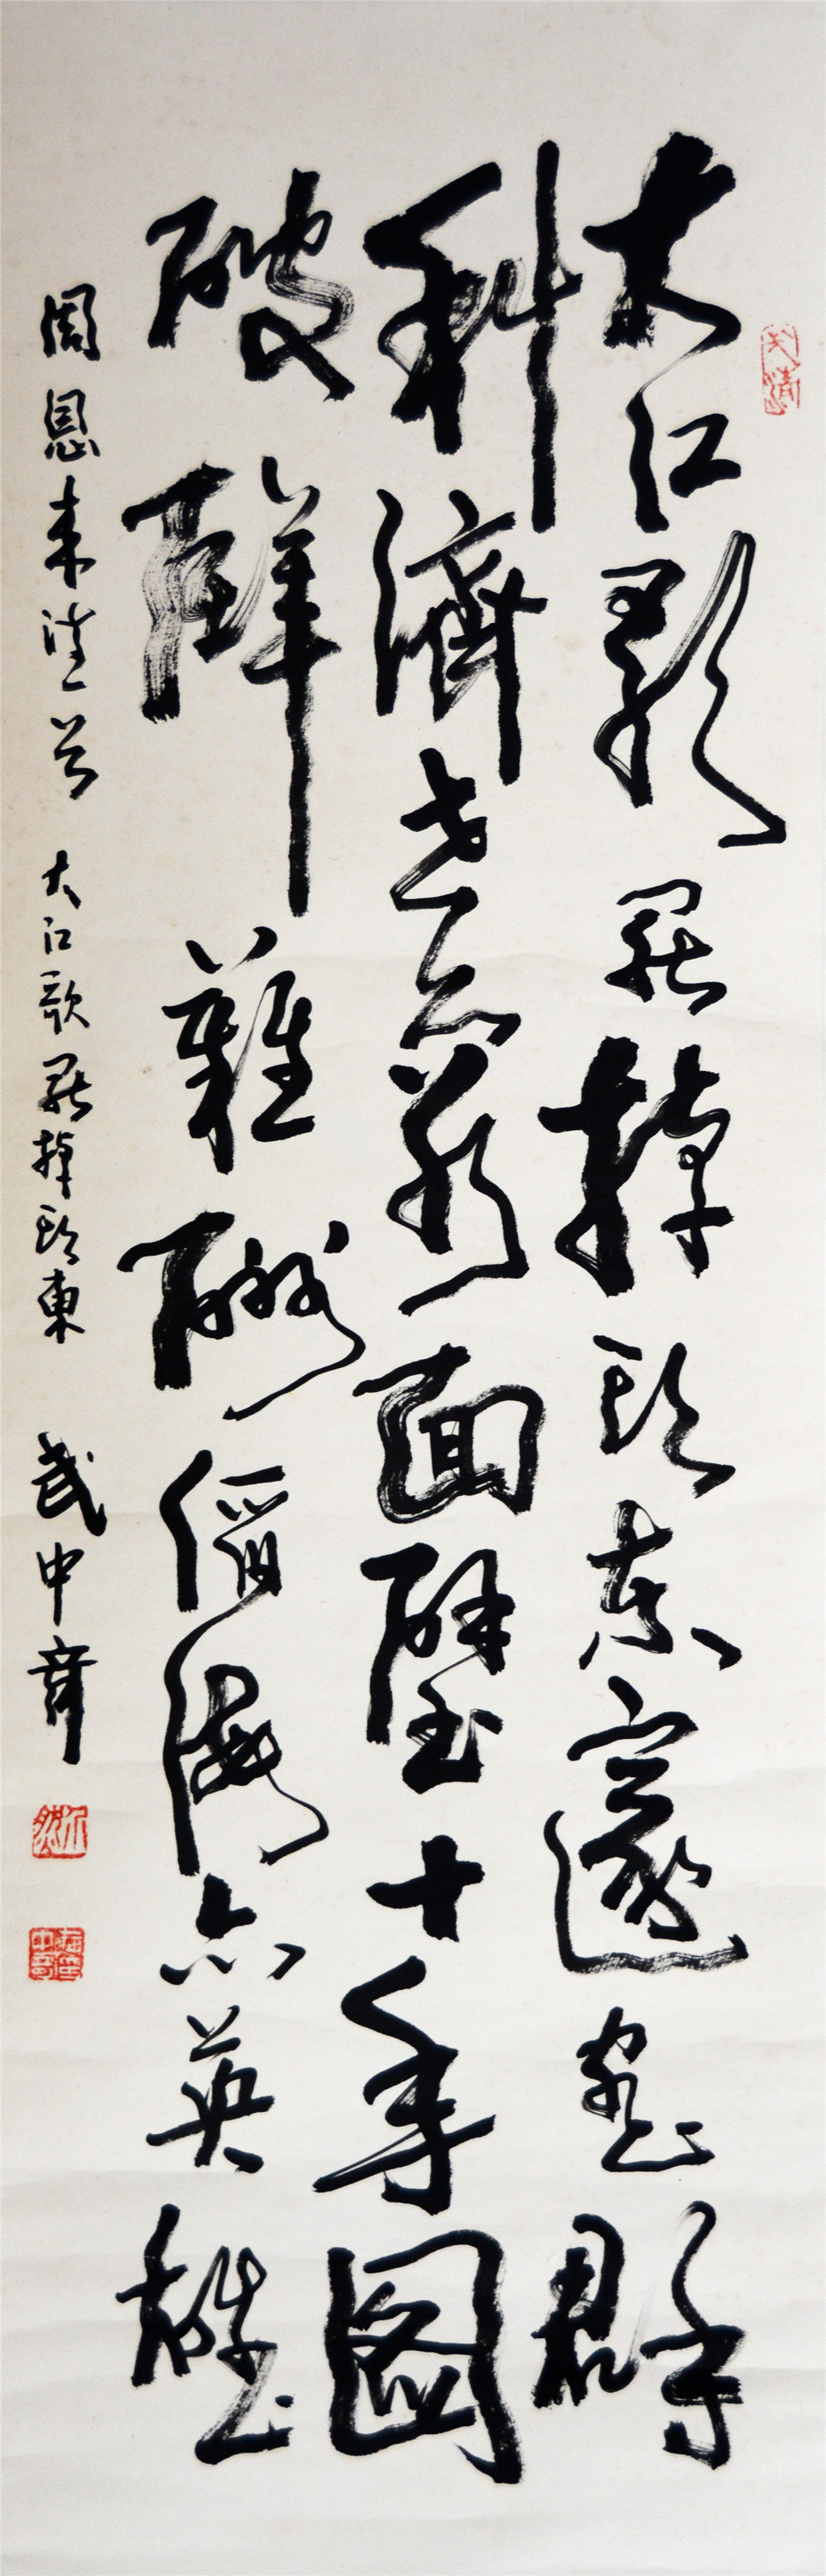 大江歌罷掉頭東邃密群
科濟世窮面壁十年圖
破壁難酬蹈海亦英雄
周恩來 大江歌罷掉頭東 武中奇